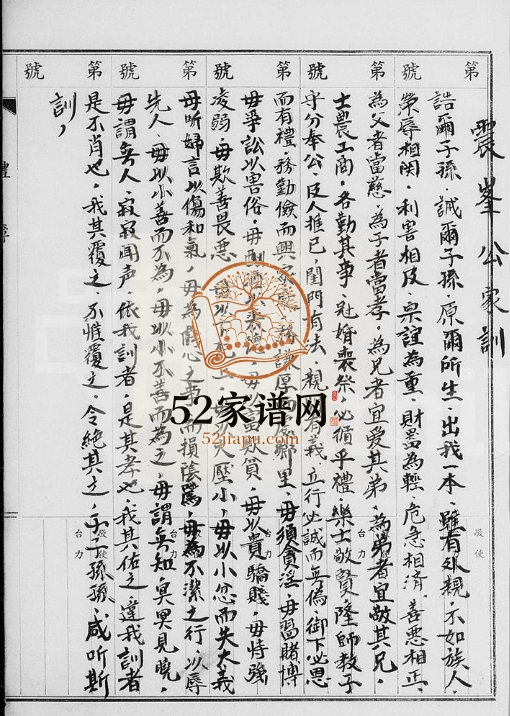 震峯公家訓
誥爾子孫．誠爾子孫．原爾所生．出我一本．雖有外親．不如族人．
榮辱相関．利害相及．宗誼為重．財器為輕．危急相済．善悪相正．
為父者當慈．為子者當孝．為兄者宜爱其弟．為弟者宜敬其兄．
士農工商．各勤其事．冠婚喪祭．必循乎禮．樂士敬賢．隆師教子
守分奉公．及人推已．閨門有法．親有義．立行必誠而無偽．御下必恩
而有禮．務勤儉而興家厚鄉里．毋須貪淫．毋習賭博
毋爭訟以害俗．毋欺貧．毋以貴驕賤．毋恃強
凌弱．毋欺善畏悪．毋以大壓小．毋以小忿而失大義
毋听婦言以傷和氣．毋為虧心之事而損陰騭．毋為不潔之行以辱
先人．毋以小善而不為．毋以小不善而為之．毋謂無知．冥冥見曉．
毋謂無人．寂寂闻声．依我訓者．是其孝也．我其佑之．違我訓者
是不肖也．我其覆之．不惟覆之．令絶其之．子子孫孫．咸听斯
訓，
第 號
第 號
第 號
第 號
第 號
第 號
52家谱网
52jiapu.com